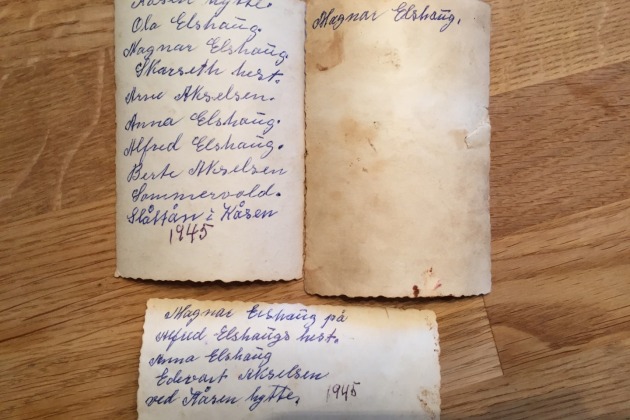 Kåsen hytte.
Ola Elshaug.
Magnar Elshaug.
Skarseth hest.
Arne Akselsen.
Anna Elshaug.
Alfred Elshaug.
Berte Akselsen
Sommervold.
Slåttån i Kåsen
1945
Magnar Elshaug.
Magnar Elshaug på
Alfred Elshaugs hest.
Anna Elshaug
Edvart Akselsen
ved Kåsen hytte. 1945